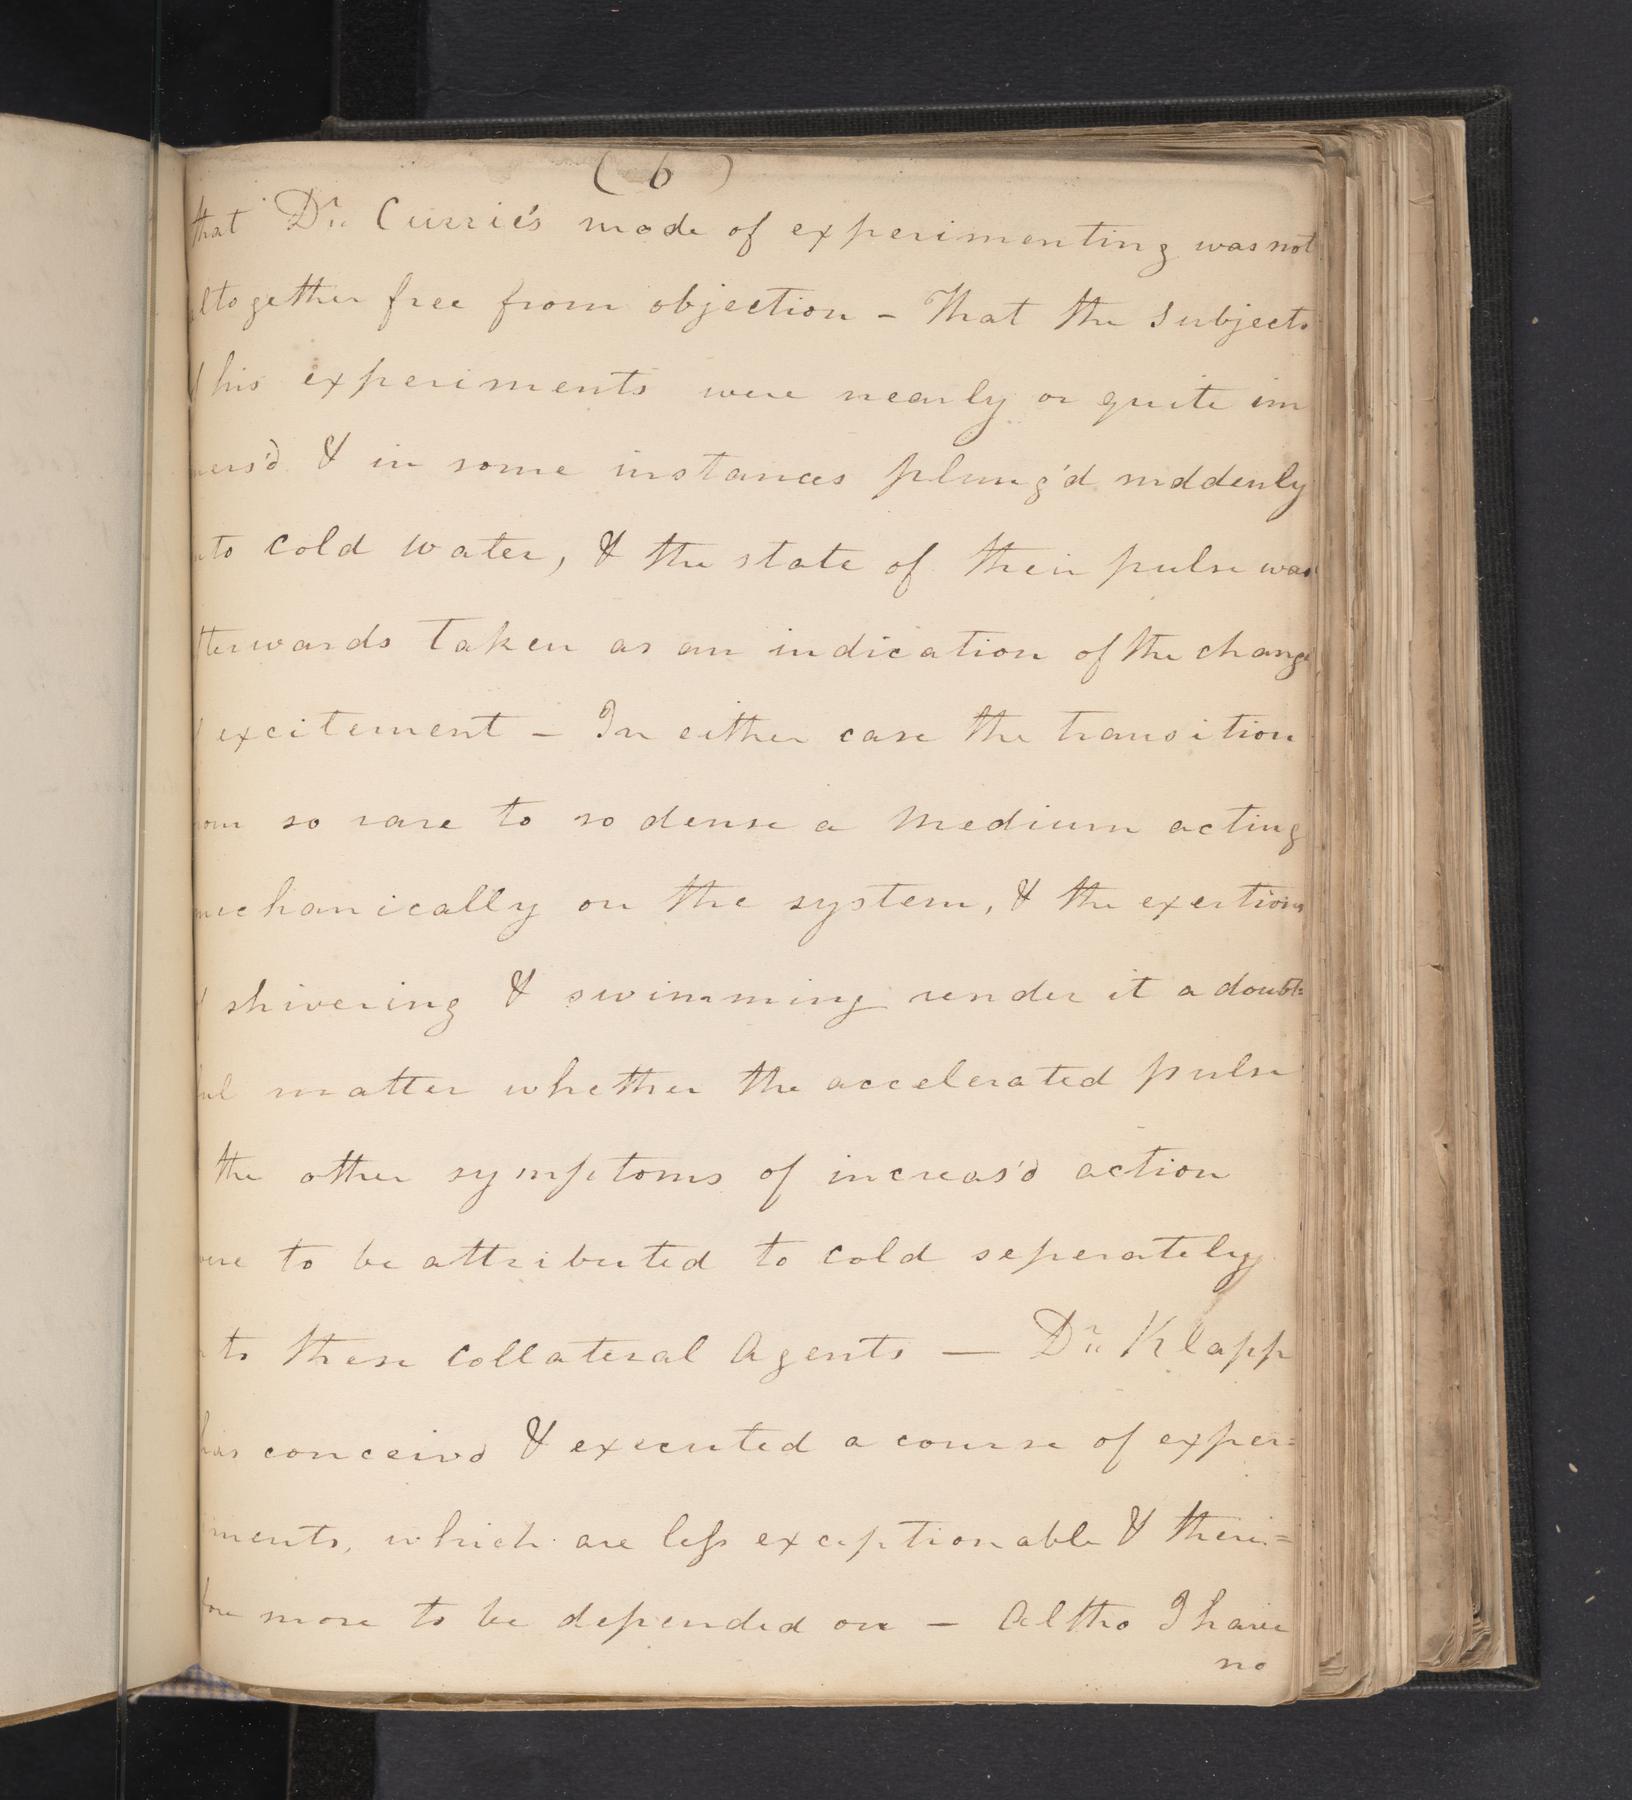 ( 6 )
that Dr. Currie's mode of experimenting was not
ltogether free from objection - That the Subjects
his experiments were nearly or quite im
mers'd & in some instances plung'd suddenly
nto cold water, & the state of their pulse was
terwards taken as an indication of the change
excitement - In either case the transition
rom so rare to so dense a Medium acting
mechanically on the system, & the exertions
shivering & swimming render it a doubt=
ful matter whether the accelerated pulse
the other symptoms of increas'd action
were to be attributed to cold seperately
to these Collateral Agents — Dr. Klapp
has conceiv'd & executed a course of exper=
ments, which are less exceptionable & there=
fore more to be depended on - Altho I have
no